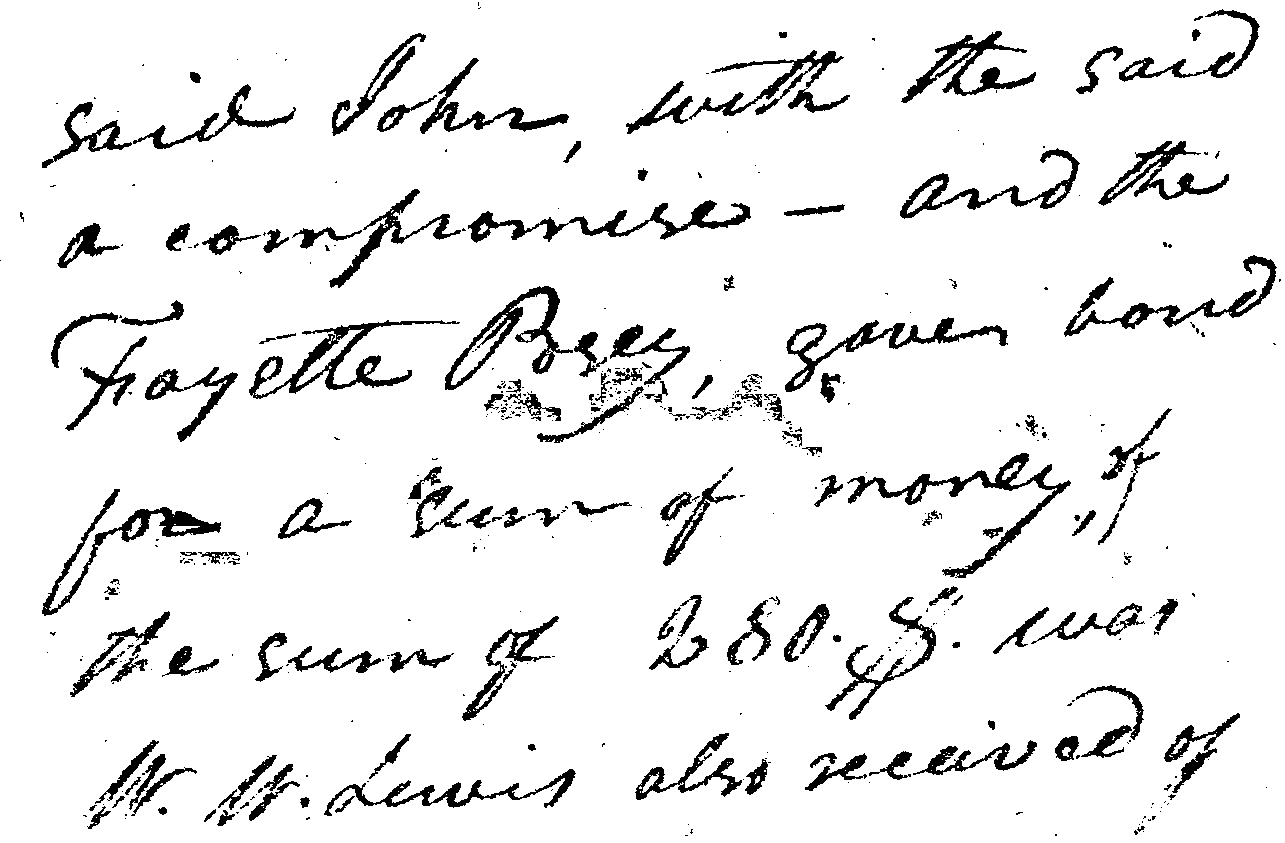 said John, with the said
a compromise — and the
Fayette Posey, gave bond
for a sum of money, of
the sum of 280. $. was
W. W. Lewis also received of